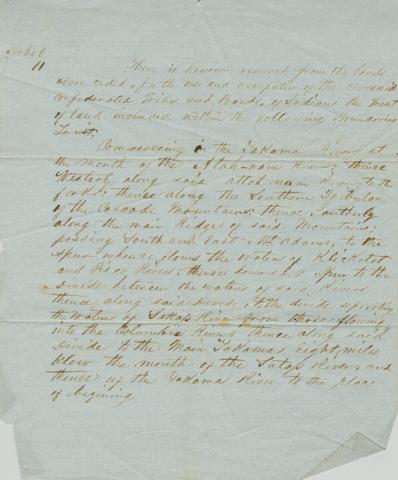 Article
11
There is however reserved from the lands
above ceded, for the use and occupation of the aforesaid
Confederated Tribes and Bands of Indians the tract
of land included within the following boundaries
To wit:
Commencing in the Yakama River at
the mouth of the Attah-nam River; thence
Westerly along said Attah nam River to the
forks; thence along the Southern Tributary
of the Cascade Mountains; thence Southerly
along the main Ridge of said Mountains;
passing South and East Mt. Adams, to the
Spur whence flows the waters of Klickatat
and Pisco Rivers; thence down said Spur to the
Divide between the waters of said Rivers
thence along said Divide, to the divide seperating
the Waters of Satass River from those flowing
into the Columbia River; thence along said
Divide to the Main Yakama Eight miles
below the mouth of the Satass River; and
thence up the Yakama River to the place
of begining